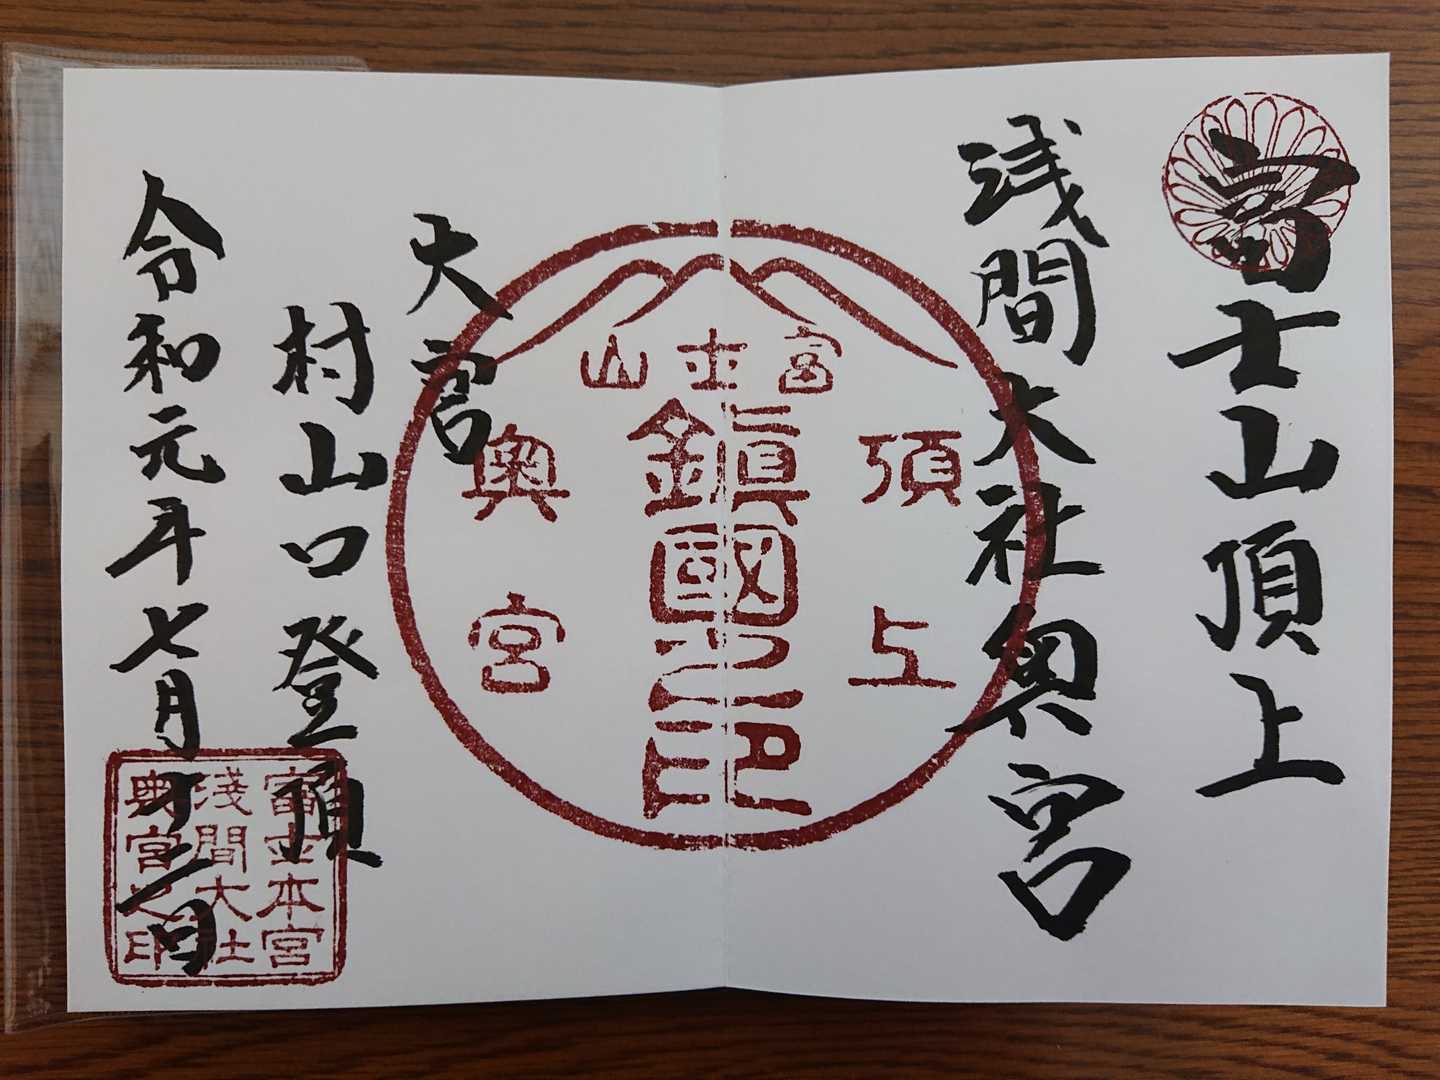 冨士山頂上
浅間大社奥宮
冨士山
頂上
鎭國之印
奥宮
大宮
村山口登頂
令和元年七月十日
富士本宮
淺間大社
奥宮之印